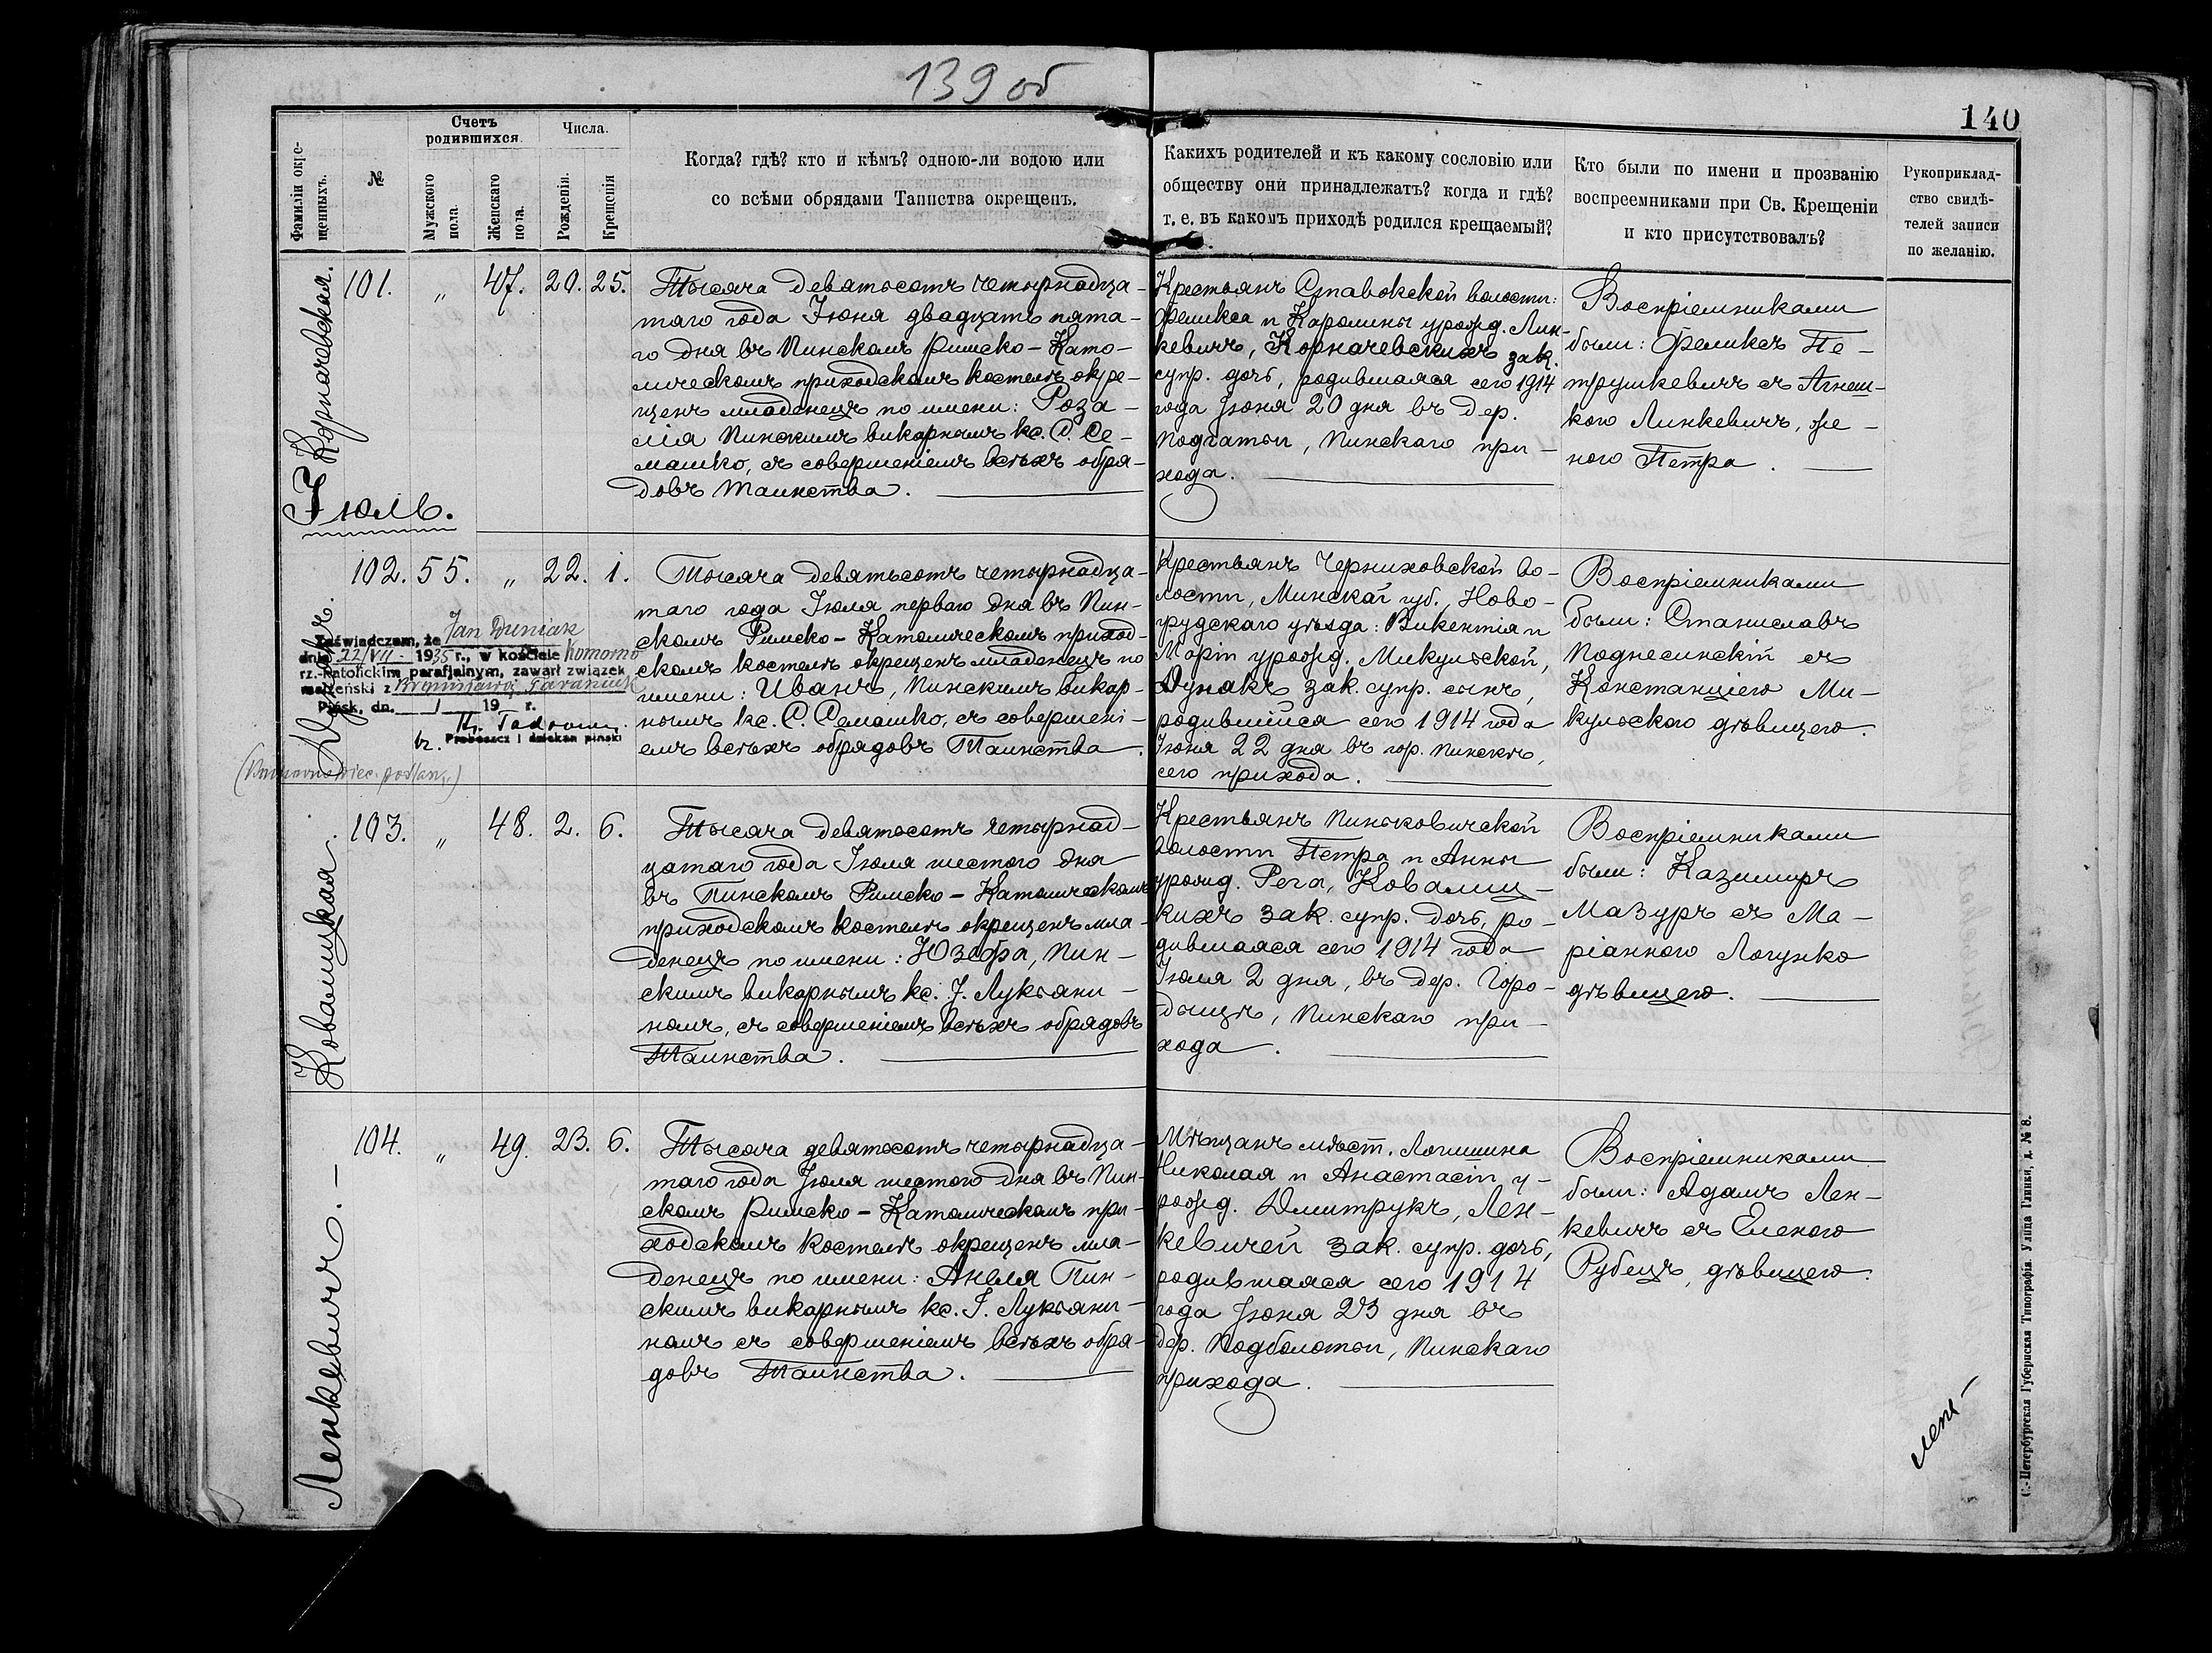 139 об
140
Фамиліи окре-
щенныхъ.
№
Счетъ
родившихся.
Мужского
пола.
Женскаго
пола.
Числа.
Рожденія.
Крещенія
Когда? гдѣ? кто и кѣмъ? одною-ли водою или
со всѣми обрядами Таинства окрещенъ.
Какихъ родителей и къ какому сословію или
обществу они принадлежатъ? когда и гдѣ?
т. е. въ какомъ приходѣ родился крещаемый?
Кто были по имени и прозванію
воспреемниками при Св. Крещеніи
и кто присутствовалъ?
Рукоприклад-
ство свидѣ-
телей записи
по желанію.
Корначевская.
101. „ 47. 20. 25.
Тысяча девятьсотъ четырнадца-
таго года Іюня двадцать пята-
го дня въ Пинскомъ Римско-Като-
лическомъ приходскомъ костелѣ окре-
щенъ младенецъ по имени: Роза-
лія Пинскимъ викарнымъ кс. С. Се-
машко, съ совершеніемъ всѣхъ обря-
довъ Таинства.
Крестьянъ Ставокской волости:
Феликса и Каролины урожд. Лин-
кевичъ, Корначевскихъ зак.
супр. дочь, родившаяся сего 1914
года Іюня 20 дня въ дер.
Подгатьи, Пинскаго при-
хода.
Воспріемниками
были: Феликсъ Пе-
трушкевичъ съ Агнеш-
кою Линкевичъ, же-
ною Петра.
Іюль.
Дунякъ.
102. 55. „ 22. 1.
Zaświadczam, że Jan Duniak
dnia 22/VII 1935 r., w kościele Komorno
rz.-katolickim parafjalnym, zawarł związek
małżeński z Bronisławą Taraniuk
Pińsk, dn. / 19 r.
Proboszcz i dziekan piński
Тысяча девятьсотъ четырнадца-
таго года Іюля перваго дня въ Пин-
скомъ Римско-Католическомъ приход-
скомъ костелѣ окрещенъ младенецъ по
имени: Иванъ, Пинскимъ викар-
нымъ кс. С. Семашко, съ совершені-
емъ всѣхъ обрядовъ Таинства.
Крестьянъ Черниховской во-
лости, Минской губ., Ново-
грудскаго уѣзда: Викентія и
Маріи урожд. Микульской,
Дунякъ зак. супр. сынъ,
родившійся сего 1914 года
Іюня 22 дня въ гор. Пинскѣ,
сего прихода.
Воспріемниками
были: Станиславъ
Поднесинскій съ
Констанціею Ми-
кульскою дѣвицею.
Ковалицкая.
103. „ 48. 2. 6.
Тысяча девятьсотъ четырнад-
цатаго года Іюля шестого дня
въ Пинскомъ Римско-Католическомъ
приходскомъ костелѣ окрещенъ мла-
денецъ по имени: Юзефа, Пин-
скимъ викарнымъ кс. І. Лукьяни-
номъ, съ совершеніемъ всѣхъ обрядовъ
Таинства.
Крестьянъ Пиньковичской
волости Петра и Анны
урожд. Рега, Ковалиц-
кихъ зак. супр. дочь, ро-
дившаяся сего 1914 года
Іюля 2 дня, въ дер. Горо-
дищѣ, Пинскаго при-
хода.
Воспріемниками
были: Казимиръ
Мазуръ съ Ма-
ріанною Логунко
дѣвицею.
Ленкевичъ.
104. „ 49. 23. 6.
Тысяча девятьсотъ четырнадца-
таго года Іюля шестого дня въ Пин-
скомъ Римско-Католическомъ при-
ходскомъ костелѣ окрещенъ мла-
денецъ по имени: Анеля Пин-
скимъ викарнымъ кс. І. Лукьяни-
номъ съ совершеніемъ всѣхъ обря-
довъ Таинства.
Мѣщанъ мѣст. Логишина
Николая и Анастасіи у-
рожд. Дмитрукъ, Лен-
кевичей зак. супр. дочь,
родившаяся сего 1914
года Іюня 23 дня въ
дер. Подболотьи, Пинскаго
прихода.
Воспріемниками
были: Адамъ Лен-
кевичъ съ Еленою
Рубецъ, дѣвицею.
С.-Петербургская Губернская Типографія. Улица Глинки, д. № 8.